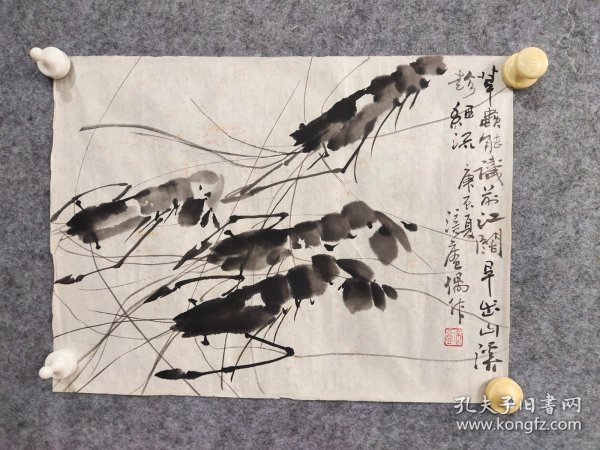 草虾能识前江阔早出山溪
趁细流 庚辰夏
漫庐偶作
孔夫子旧书网
www.kongfz.com